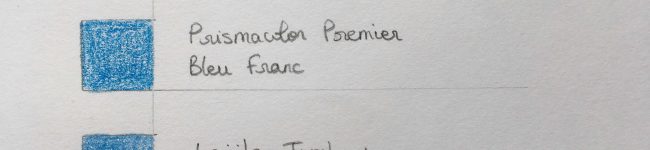 Prismacolor Premier
Bleu Franc